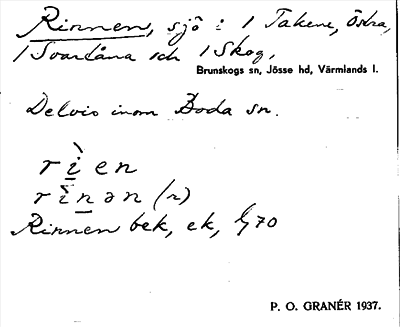 Rinnen, sjö i 1 Takene, Östra,
1 Svartåna och 1 Skog,
Brunskogs sn, Jösse hd, Värmlands l.
Delvis inom Boda sn.
r ì e n
r ì n ə n (n)
Rinnen bek, ek,
P. O. GRANÉR 1937.